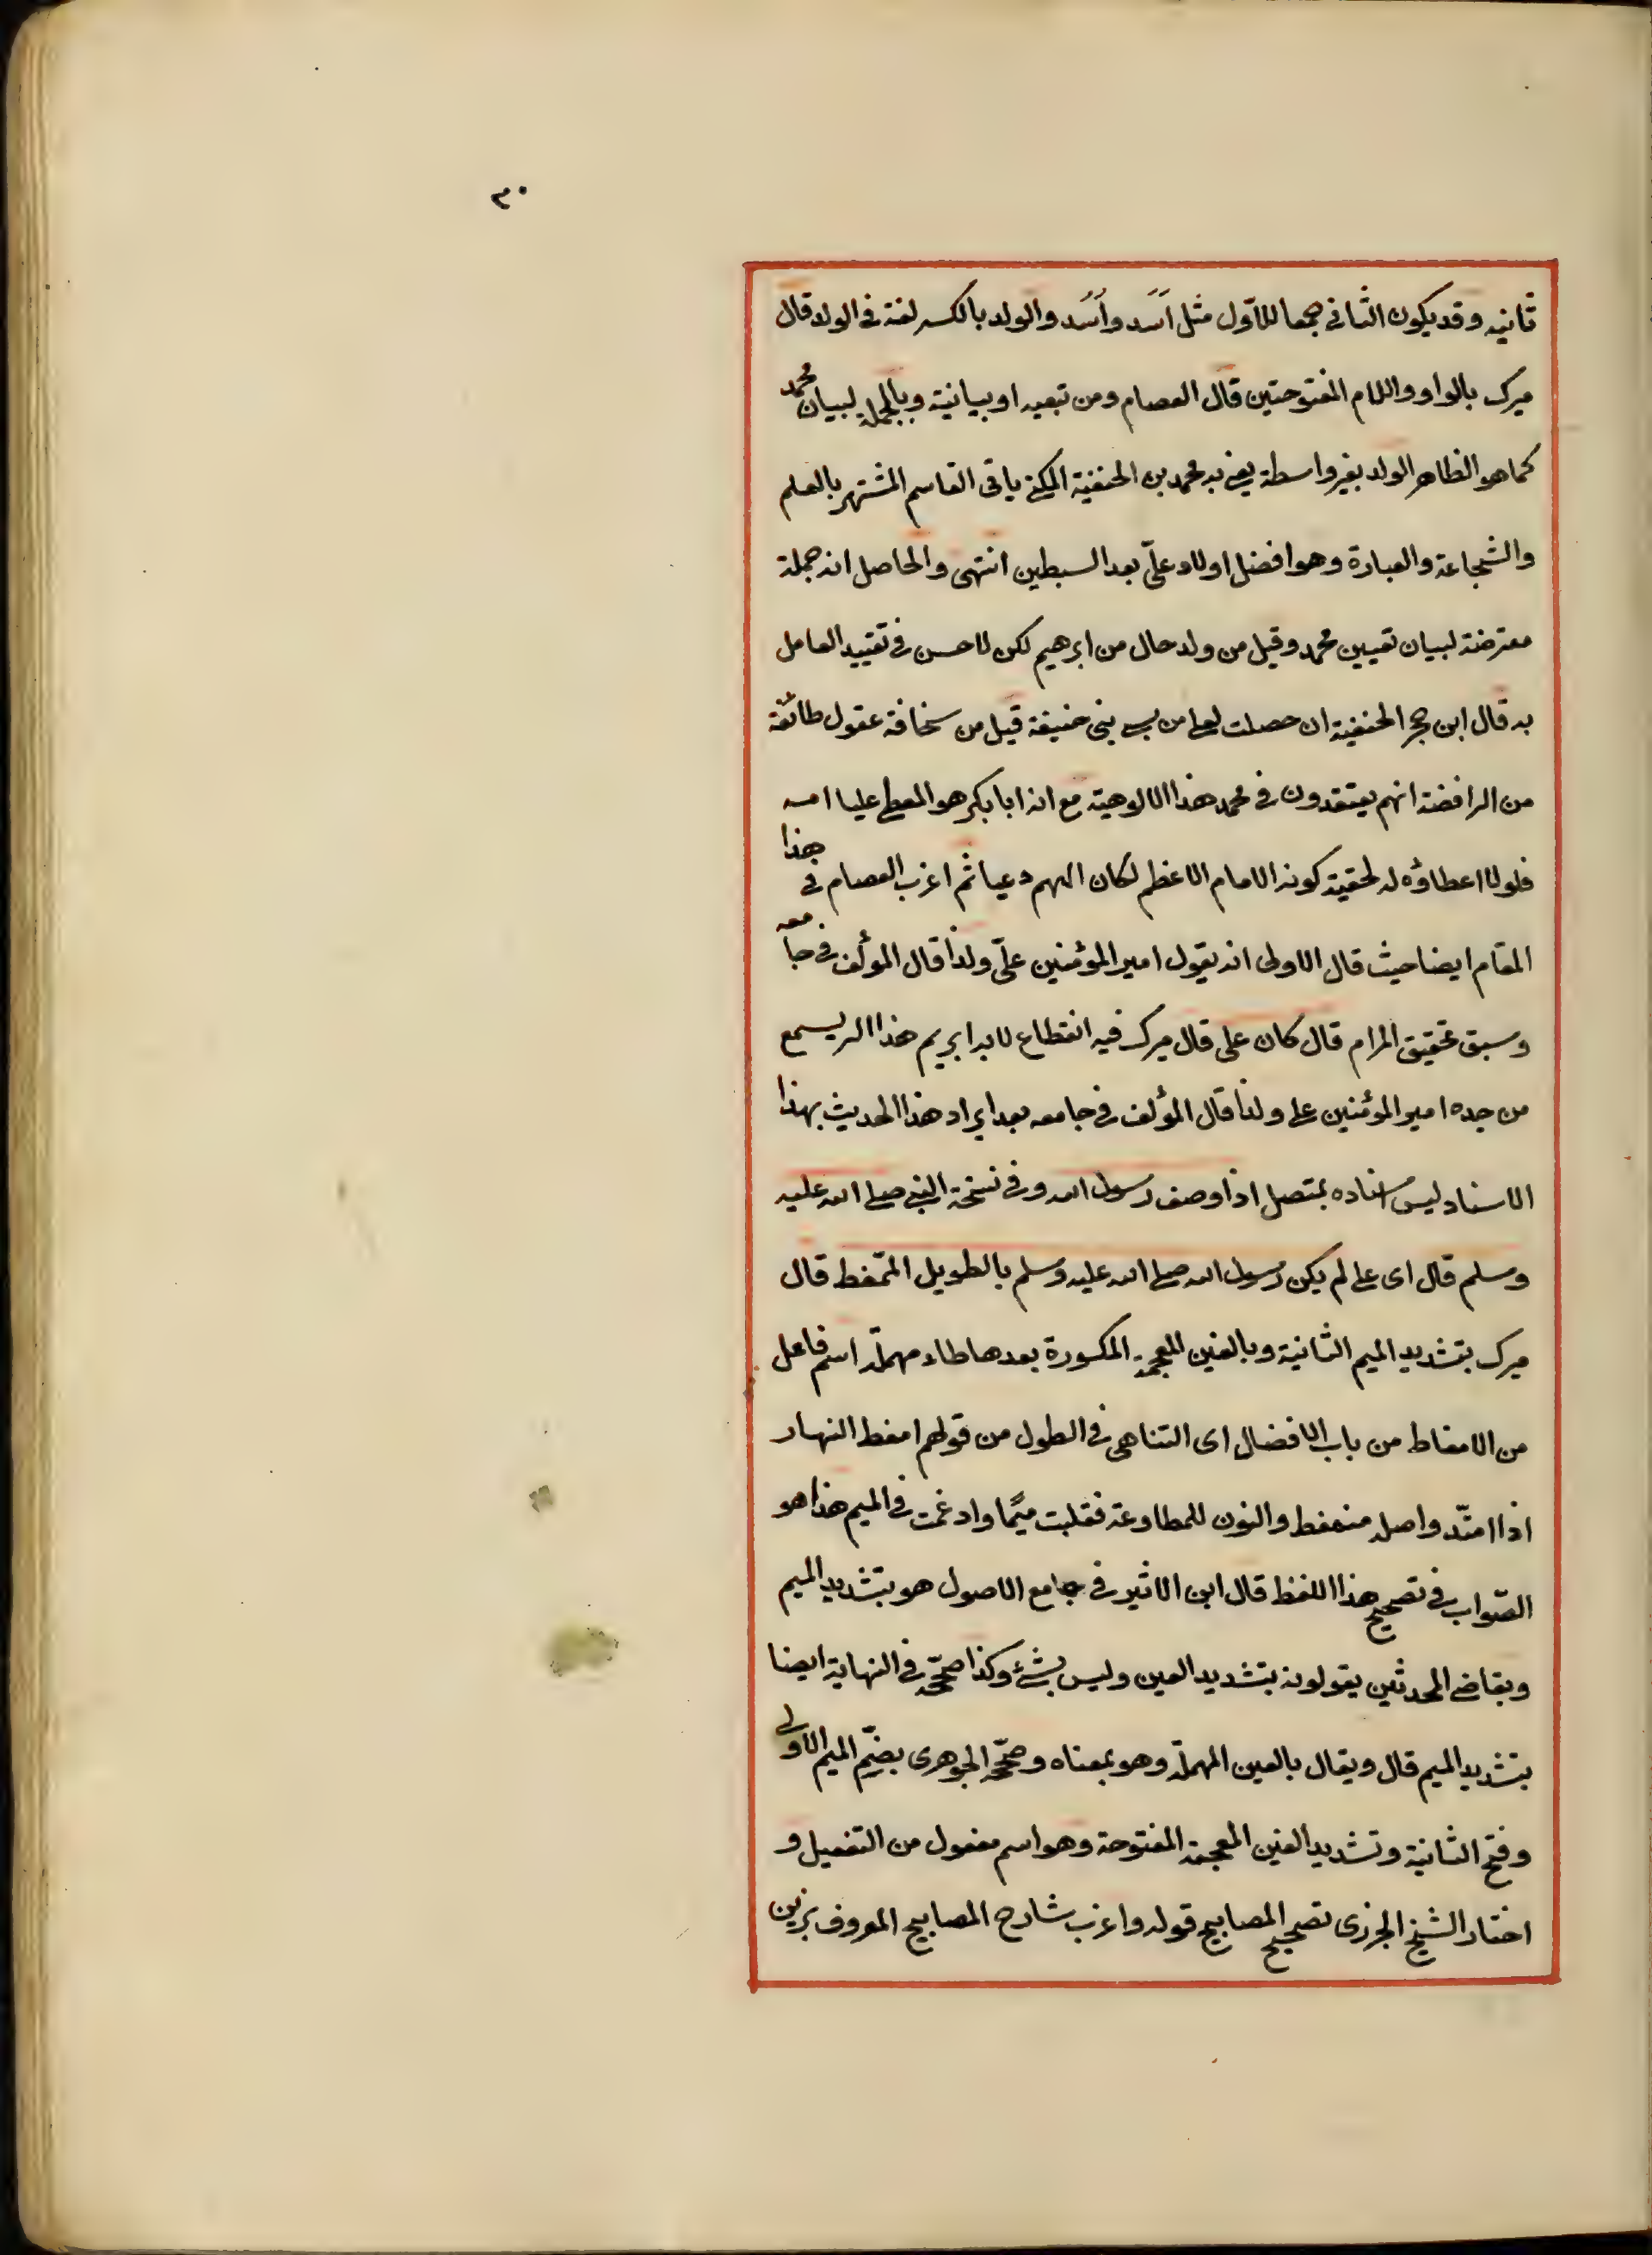 ٣٠
ثانيه وقد يكون الثاني جمعا للاول مثل اَسَد واُسُد والولد بالكسر لغة في الولد قال
ميرك بالواو واللام المفتوحتين قال العصام ومن تبعيه او بيانية وبالجملة لبيان محمد
كما هو الظاهر الولد بغير واسطة يعني به محمد بن الحنفية المكنى باتى القاسم المشتهر بالعلم
والشجاعة والعبادة وهو افضل اولاد علىّ بعد السبطين انتهى والحاصل انه جملة
معترضة لبيان تعيين محمد وقيل من ولد حال من ابرهيم لكن لا حسن في تقييد العامل
به قال ابن حجر الحنفية ان حصلت لعلى من سبى بنى حنيفة قيل من سخافة عقول طائفة
من الرافضة انهم يعتقدون في محمد هذا الالوهية مع انه ابا بكر هو المعطى عليا امه
فلولا اعطاؤه له لحقية كونه الامام الاعظم لكان الههم دعيا ثم اغرب العصام في هذا
المقام ايضا حيث قال الاولى انه يقول امير المؤمنين علىّ ولذا قال المؤلف في جامعه
وسبق تحقيق المرام قال كان على قال ميرك فيه انقطاع لانه ابريم هذا لم يسمع
من جده امير المؤمنين على ولذا قال المؤلف في جامعه بعد ايراد هذا الحديث بهذا
الاسناد ليس اسناده بمتصل اذا وصف رسول الله وفي نسخة النبي صلى الله عليه
وسلم قال اى على لم يكن رسول الله صلى الله عليه وسلم بالطويل الممّغط قال
ميرك بتشديد الميم الثانية وبالغين المعجمة المكسورة بعدها طاء مهملة اسم فاعل
من الامغاط من باب الافضال اى التناهى في الطول من قولهم امغط النهار
اذا امتّد واصله منمغط والنون للمطاوعة فقلبت ميمًا وادغمت في الميم هذا هو
الصّواب في تصحيح هذا اللفظ قال ابن الاثير في جامع الاصول هو بتشديد الميم
وبقاضى المحدثين يقولونه بتشديد الغين وليس بشئ وكذا صحّحه في النهاية ايضا
بتشديد الميم قال ويقال بالعين المهملة وهو بمعناه وصحّحه الجوهرى بضمّ الميم الاولى
وفتح الثانية وتشديد الغين المعجمة المفتوحة وهو اسم مفعول من التفعيل و
اختار الشيخ الجزرى تصحيح المصابيح قوله واغرب شارح المصابيح المعروف بزين